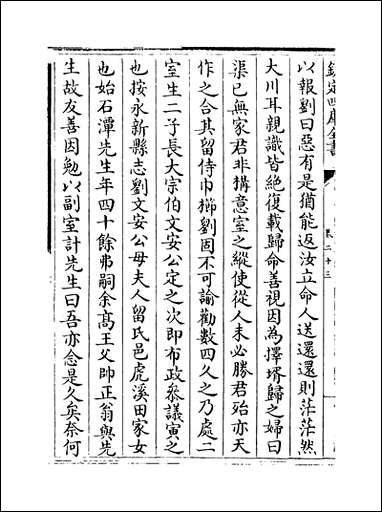 欽定四庫全書
卷二十三
以報劉曰惡有是猶能返汝立命人送還還則茫茫然
大川耳親識皆絶復載歸命善視因為擇壻歸之婦曰
渠已無家君非搆意室之縱使從人未必勝君殆亦天
作之合其留侍巾櫛劉固不可諭勸數四久之乃處二
室生二子長大宗伯文安公定之次即布政叅議寅之
也按永新縣志劉文安公母夫人留氏邑虎溪田家女
也始石潭先生年四十餘弗嗣余髙王父帥正翁與先
生故友善因勉以副室計先生曰吾亦念是久矣奈何